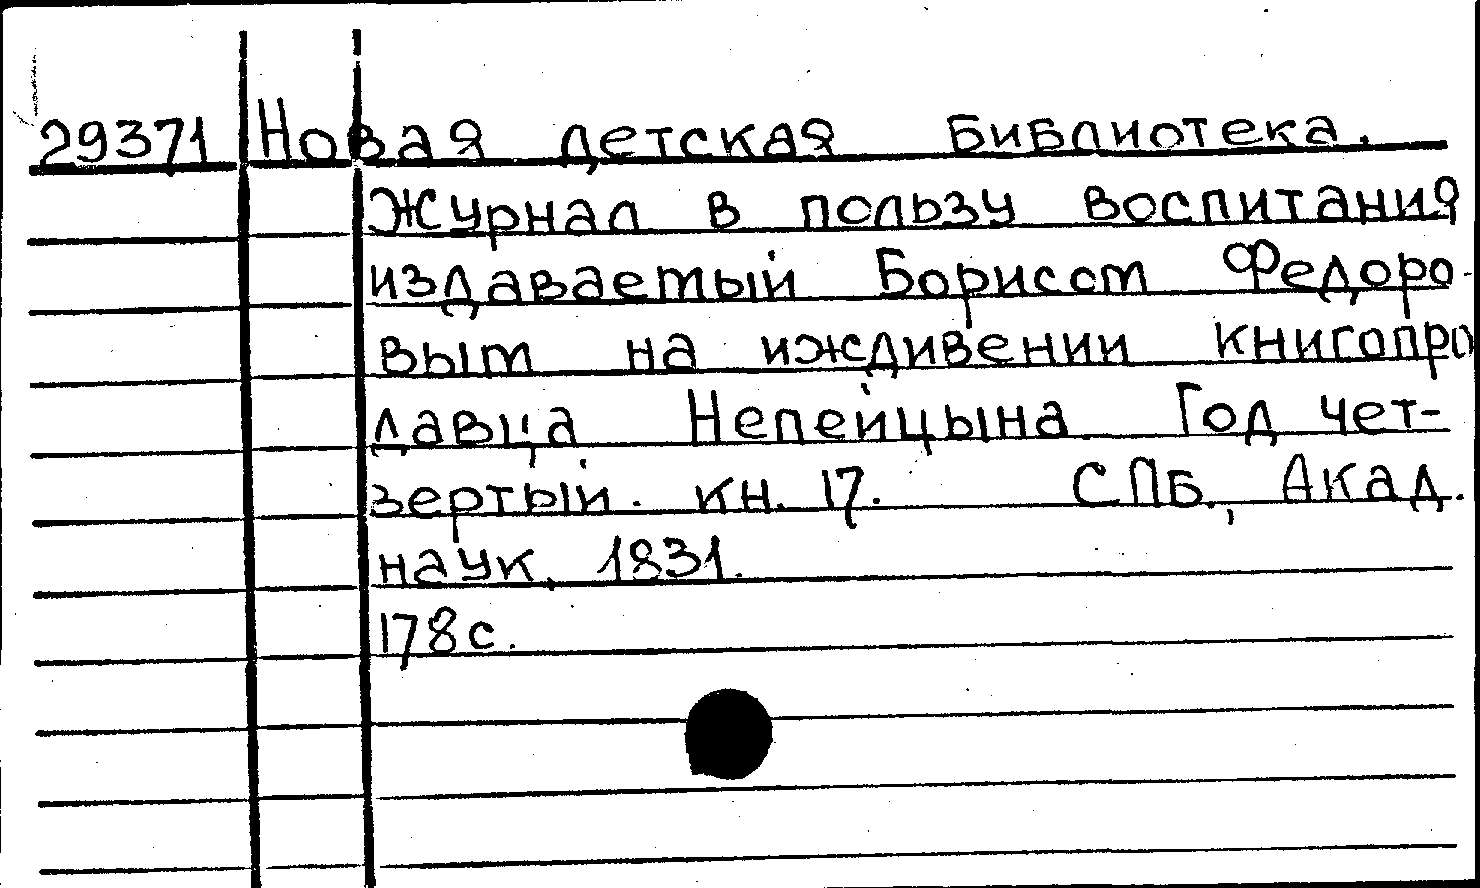 29371 Новая детская библиотека.
Журнал в пользу воспитания
издаваемый Борисом Федоро-
вым на иждивении книгопро
давца Непейцына Год чет-
вертый. кн. 17. СПБ., Акад.
наук, 1831.
178с.